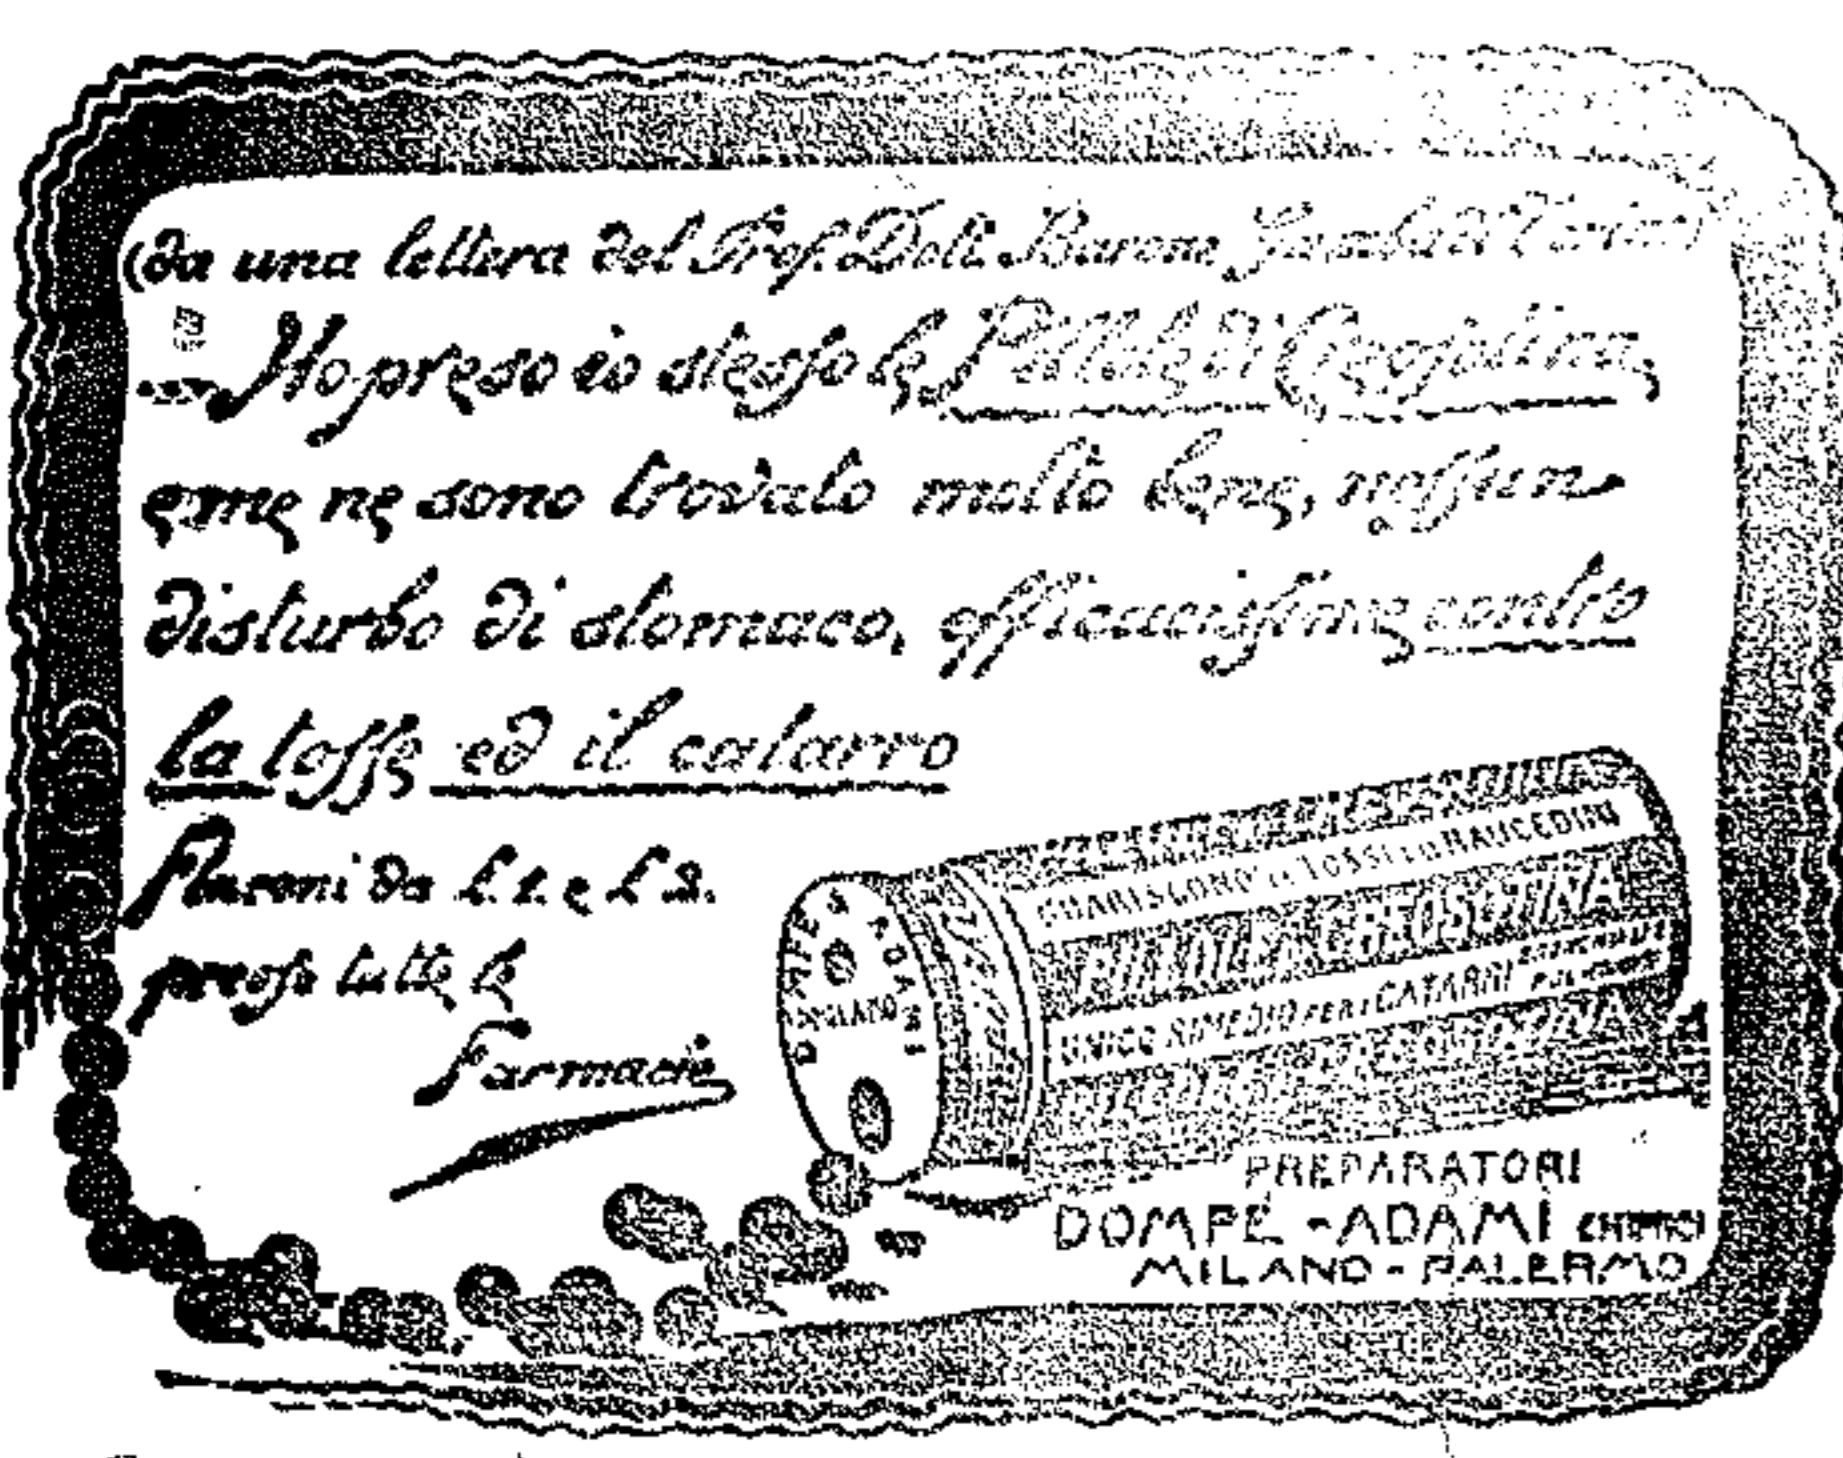 (da una lettera del Prof. Dott. Barone
Ho preso io stesso le Pillole di Creosotina,
e me ne sono trovato molto bene, nessun
disturbo di stomaco, efficacissime contro
la tosse ed il catarro
Flaconi da L. 1. e L 2.
presso tutte le
Farmacie
DOMPÉ & ADAMI
MILANO
GUARISCONO LE TOSSI ED RAUCEDINI
PILLOLE DI CREOSOTINA
UNICO RIMEDIO PER I CATARRI
PREPARATORI
DOMPÉ - ADAMI CHIMICI
MILANO - PALERMO